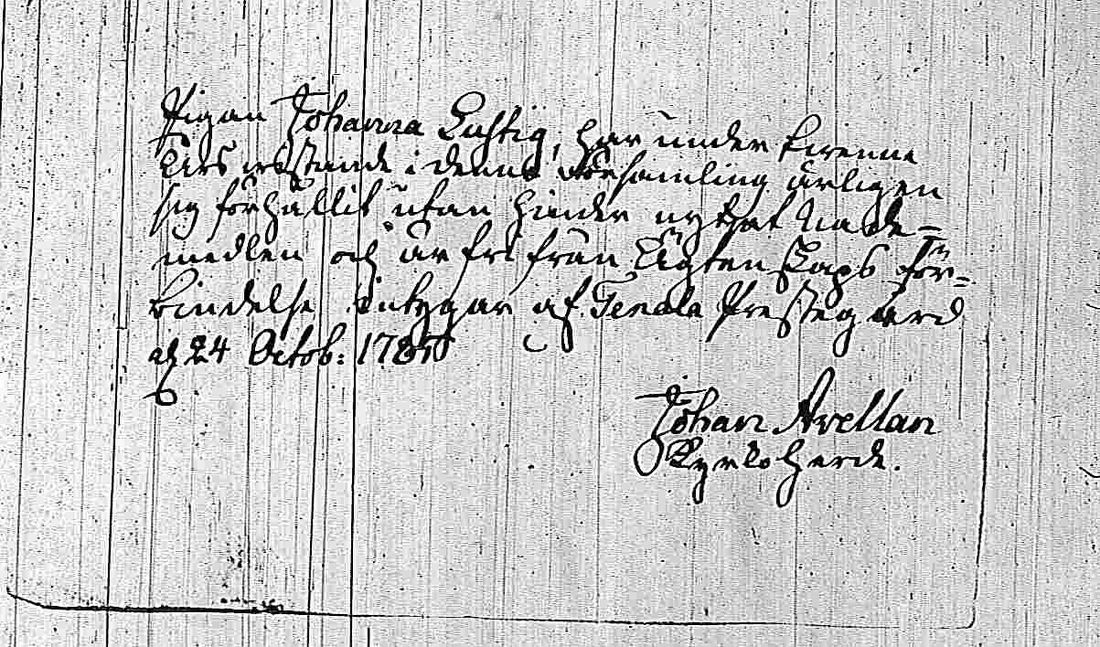 Pigan Johanna Lustig, har under trenne
åhrs vistande i denna Församling ärligen
sig förhållit utan hinder nythjat Nåde=
medlen och är fri från Ägtenskaps för=
bindelse intygar af Tenala Prestegård
d 24 Octob: 178
Johan Avellan
Kyrkoherde.